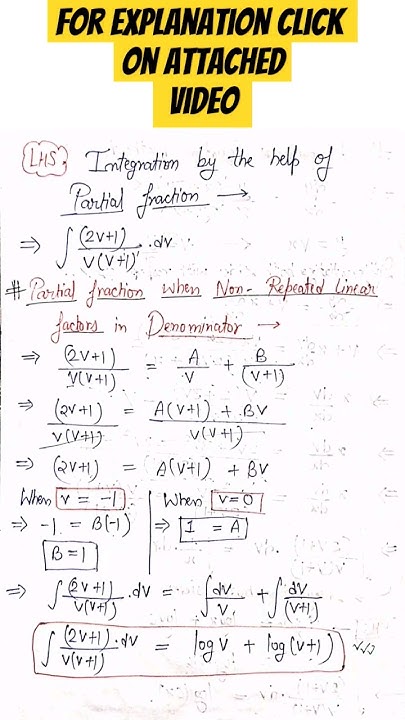 FOR EXPLANATION CLICK
ON ATTACHED
VIDEO
LHS. Integration by the help of
Partial fraction →
⇒ ∫ (2v+1)/v(v+1) .dv
# Partial fraction when Non-Repeated linear
factors in Denominator →
⇒ (2v+1)/v(v+1) = A/v + B/(v+1)
⇒ (2v+1)/v(v+1) = A(v+1) + BV/v(v+1)
⇒ (2v+1) = A(v+1) + BV
When v = -1 When v=0
⇒ -1 = B(-1) ⇒ 1 = A
B=1
⇒ ∫ (2v+1)/v(v+1) .dv = ∫ dv/v + ∫ dv/(v+1)
∫ (2v+1).dv/v(v+1) = log v + log(v+1)